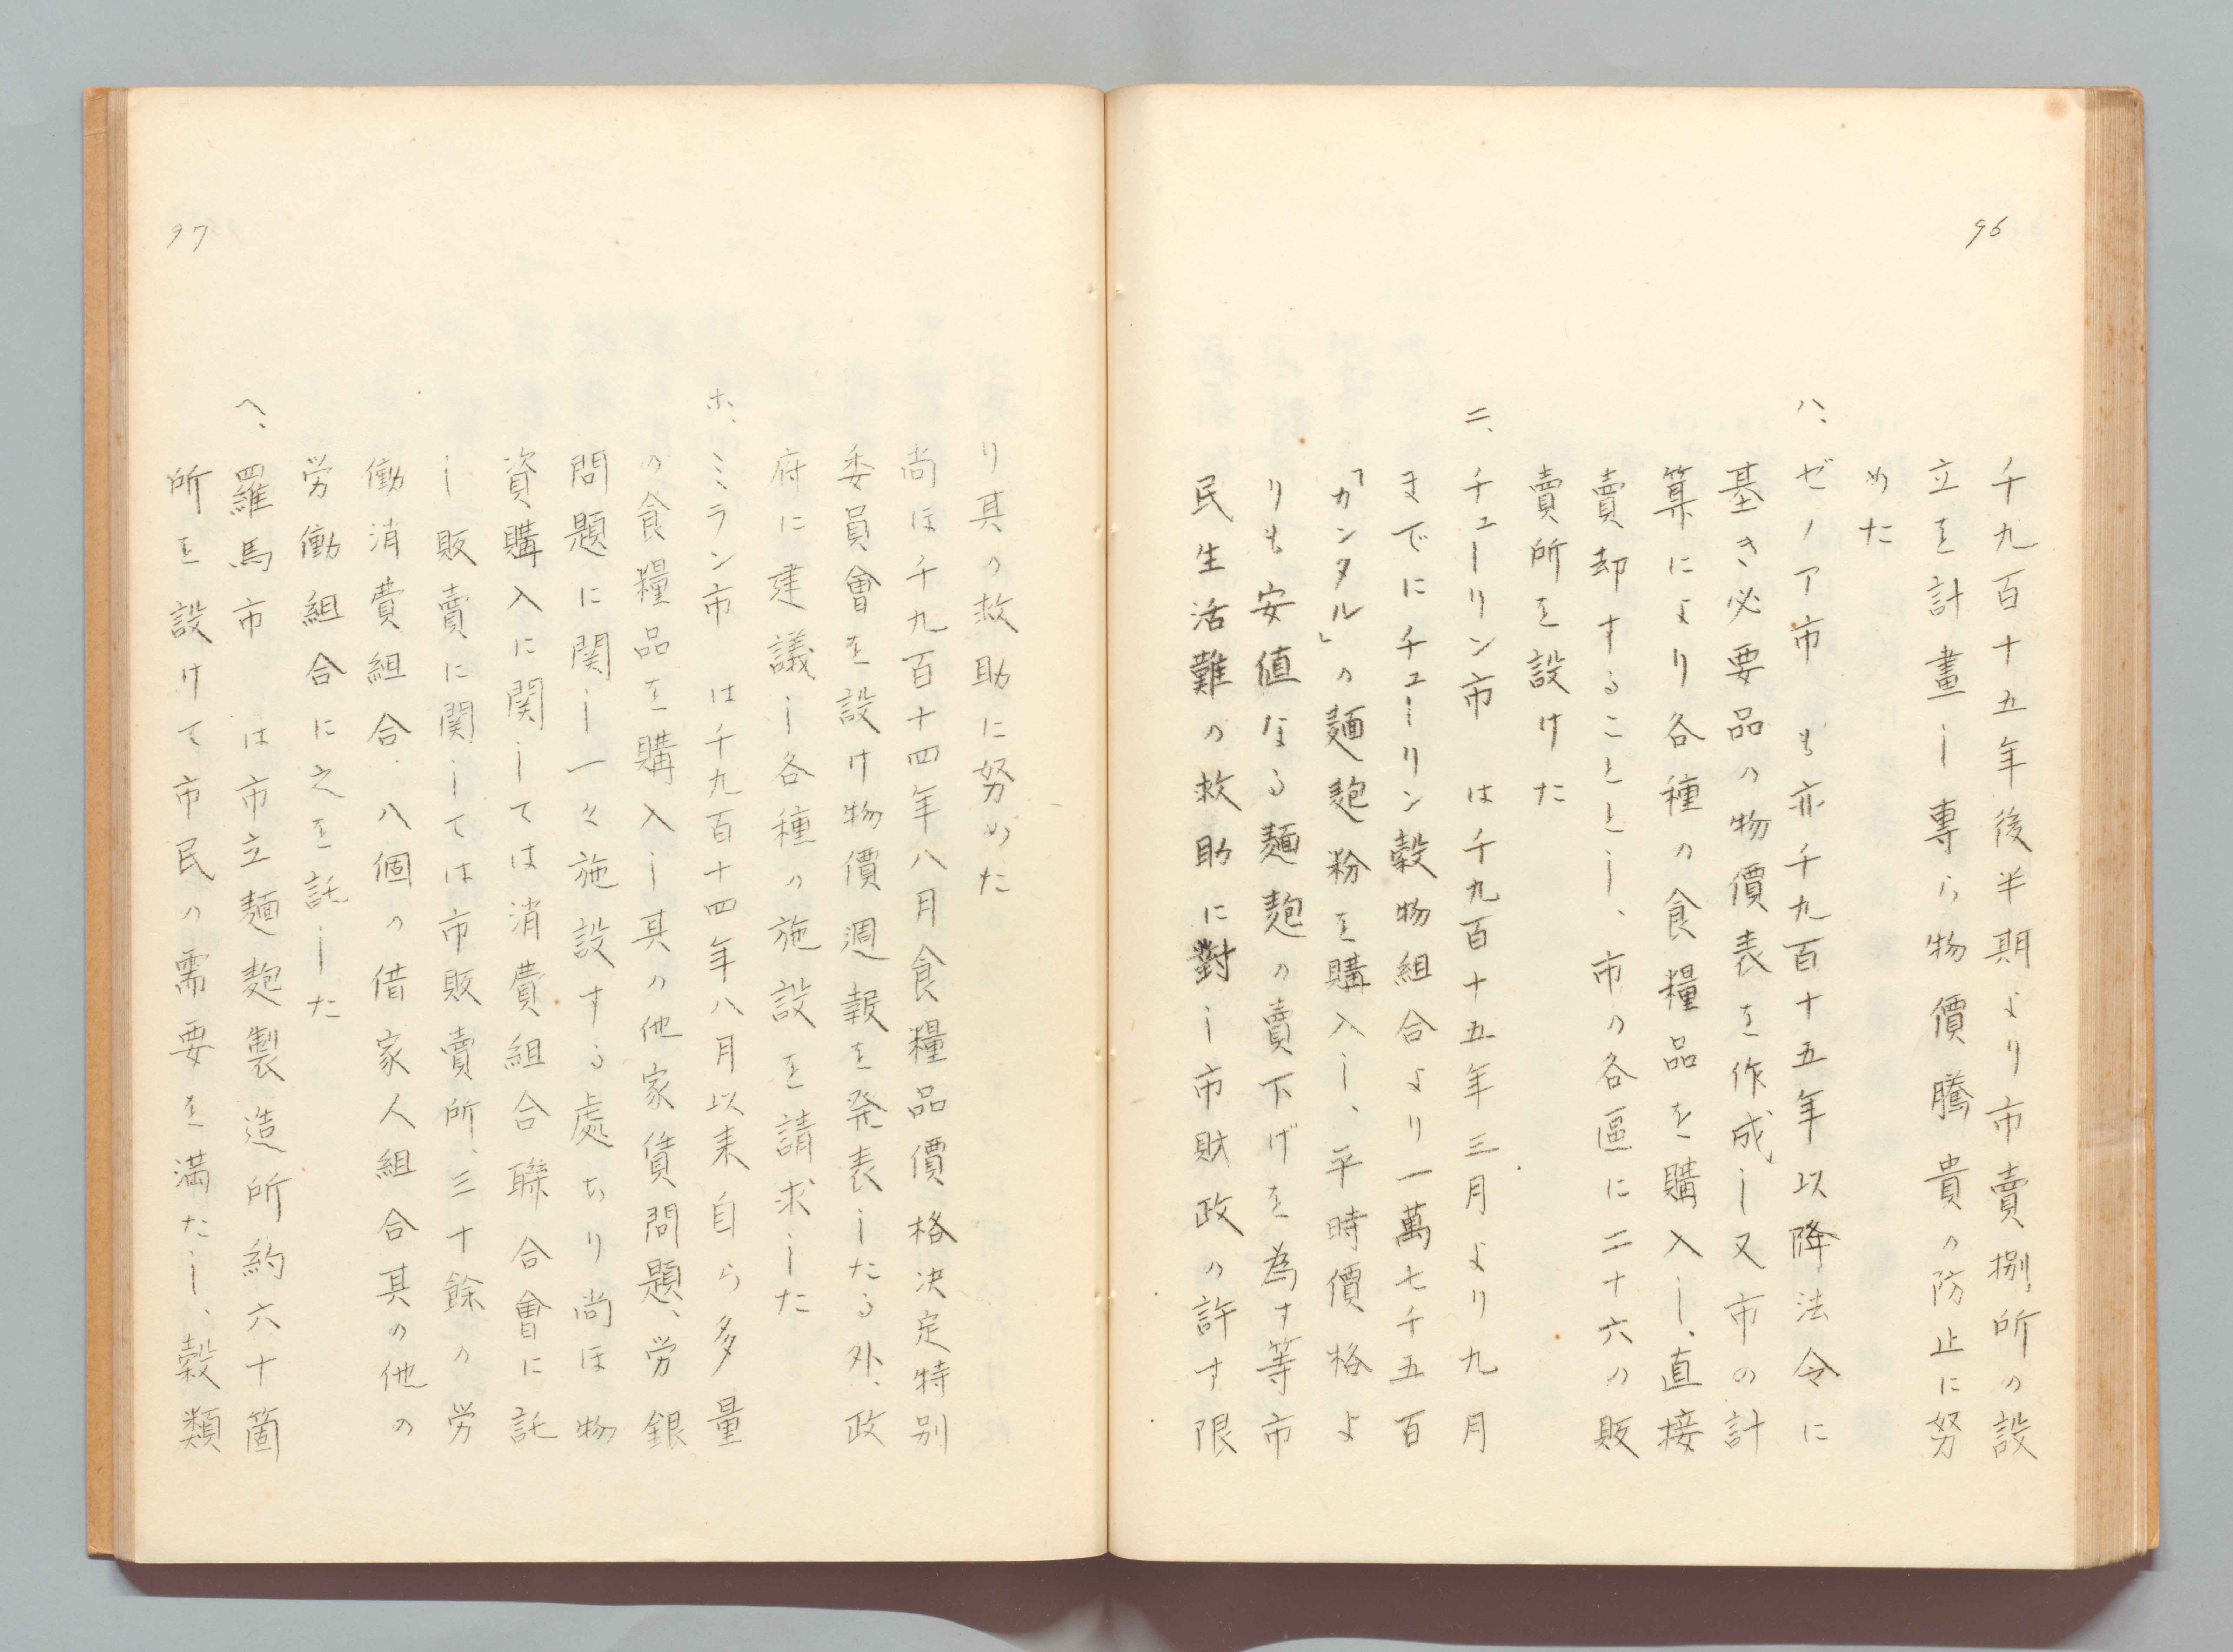 96
千九百十五年後半期より市賣捌所の設
立を計畫し專ら物價騰貴の防止に努
めた
ハ、ゼノア市　も亦千九百十五年以降法令に
基き必要品の物價表を作成し又市の計
算により各種の食糧品を購入し、直接
賣却することとし、市の各區に二十六の販
賣所を設けた
ニ、チューリン市　は千九百十五年三月より九月
までにチューリン穀物組合より一萬七千五百
「カンタル」の麺麭粉を購入し、平時價格よ
りも安値なる麺麭の賣下げを為す等市
民生活難の救助に對し市財政の許す限
97
り其の救助に努めた
尚ほ千九百十四年八月食糧品價格決定特別
委員會を設け物價週報を発表したる外、政
府に建議し各種の施設を請求した
ホ、ミラン市　は千九百十四年八月以来自ら多量
の食糧品を購入し其の他家賃問題、労銀
問題に関し一々施設する處ちり尚ほ物
資購入に関しては消費組合聯合會に託
し販賣に関しては市販賣所、三十餘の労
働消費組合、八個の借家人組合其の他の
労働組合に之を託した
ヘ、羅馬市　は市立麺麭製造所約六十箇
所を設けて市民の需要を満たし、穀類